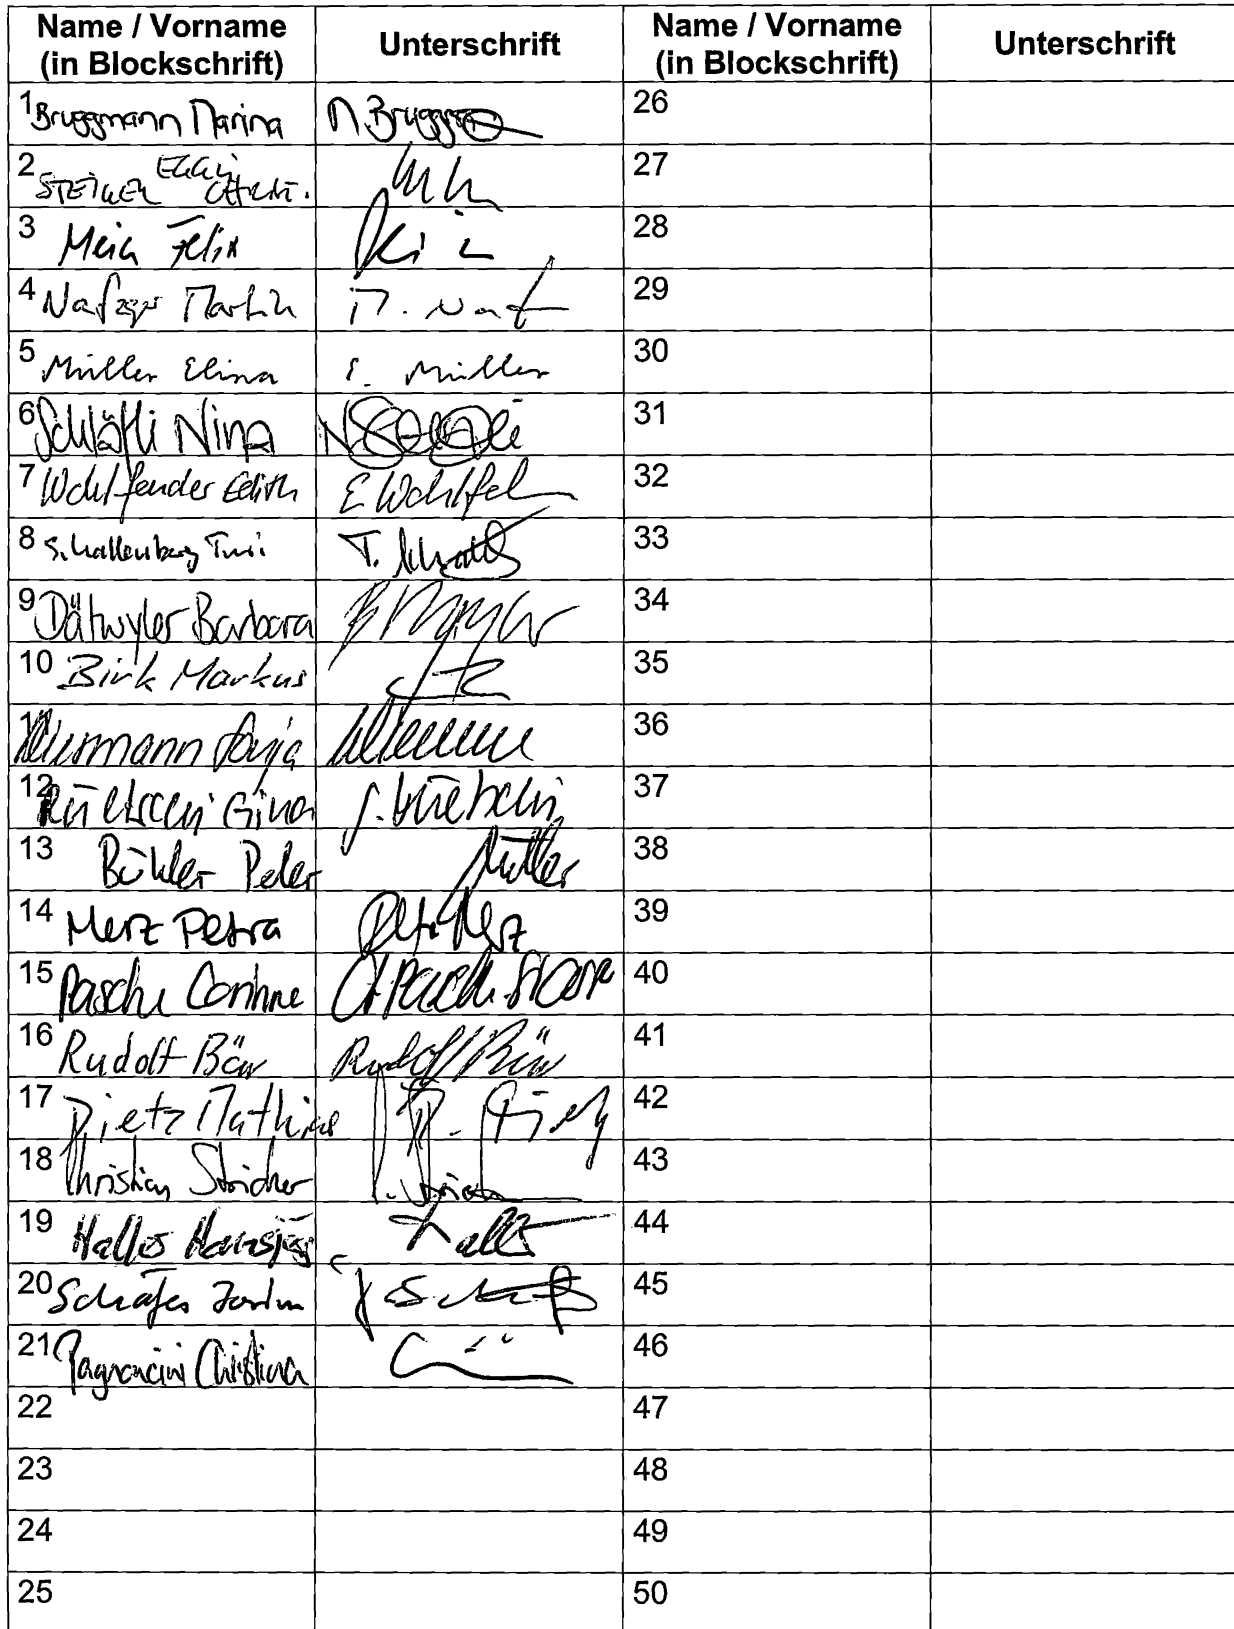 Name / Vorname
(in Blockschrift)
Unterschrift
Name / Vorname
(in Blockschrift)
Unterschrift
1 Bruggmann Marina M. Brugg
26
2 STEINER EGGLI
27
3 Meier Felix
28
4 Nafzger Martin M. Naf
29
5 Müller Elina E. Müller
30
6 Schläfli Nina N Schläfli
31
7 Wohlfender Edith E Wohlfe
32
8 Schallenberg Turi T. Schall
33
9 Dätwyler Barbara
34
10 Birk Markus
35
11 Wiesmann Sonja
36
12 Rüetschi Gina G. Rüetschi
37
13 Bühler Peter
38
14 Merz Petra Petra Merz
39
15 Pasche Corinne
40
16 Rudolf Bär Rudolf Bär
41
17 Dietz Mathias
42
18 Christian Stricker
43
19 Haller Hansjörg Haller
44
20 Schäfer
45
21 Pagnoncini Christina
46
22
47
23
48
24
49
25
50